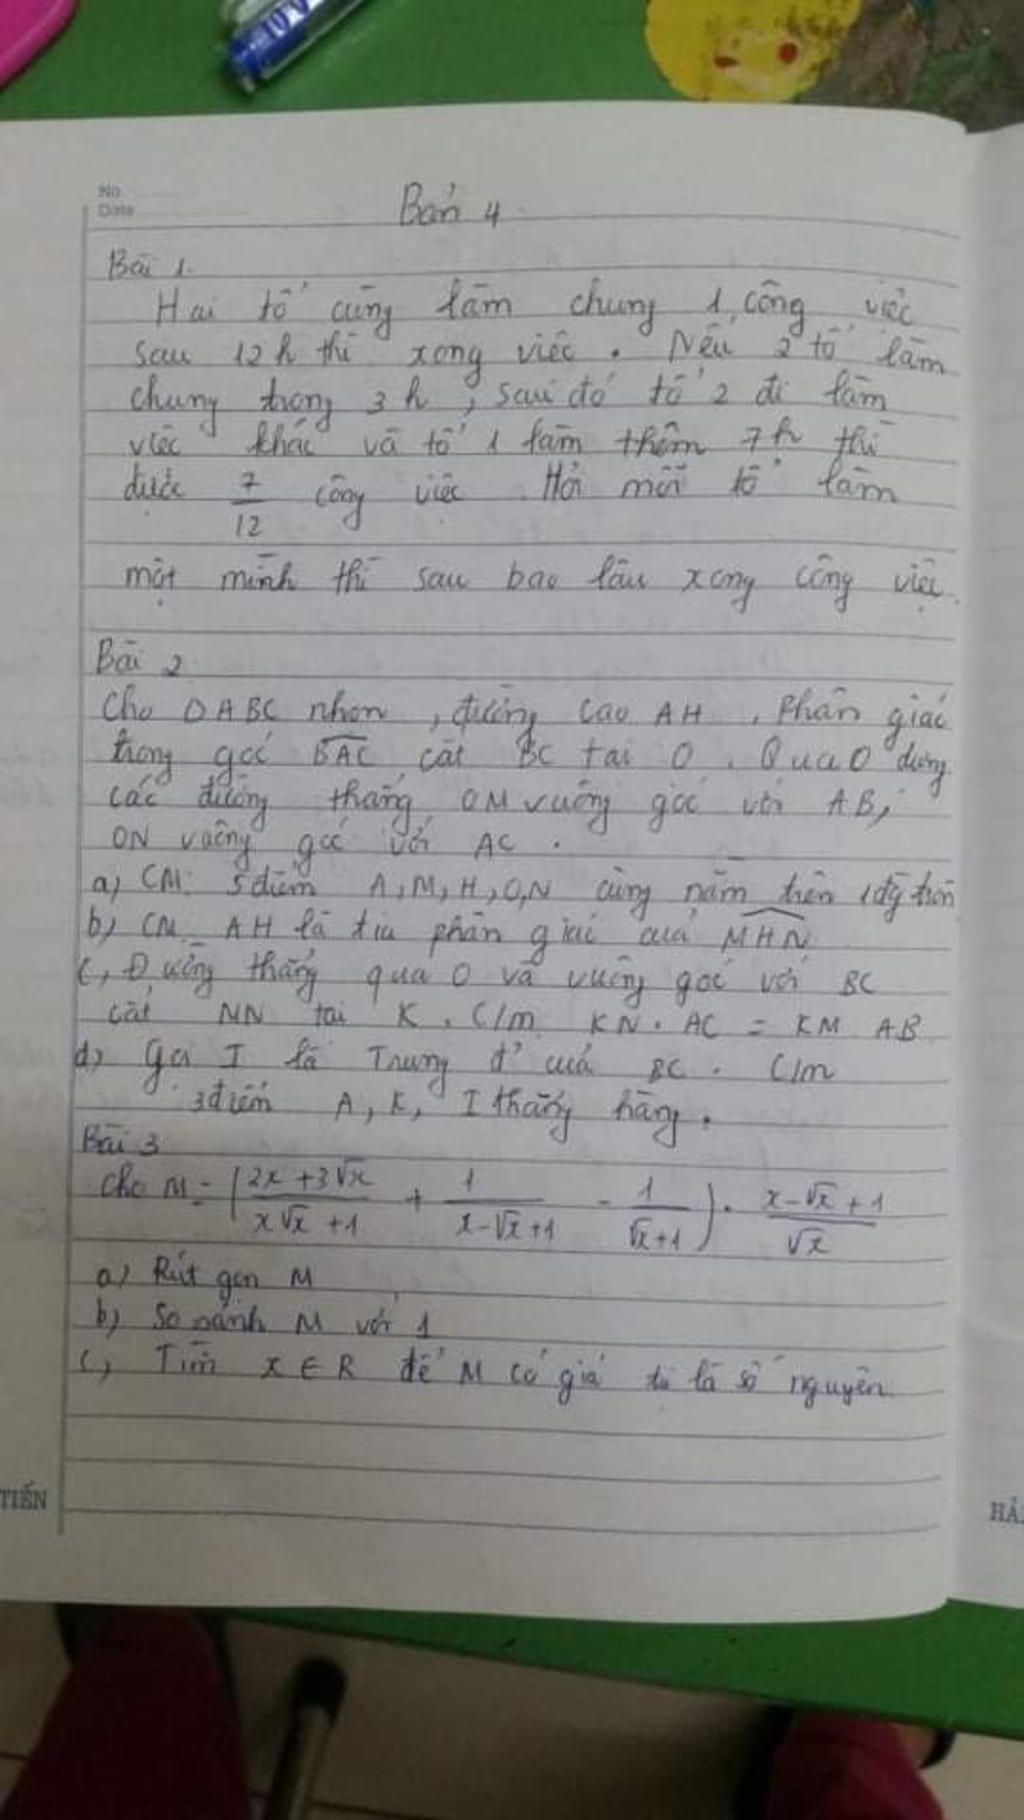 No.
Date
Bàn 4
Bài 1.
Hai tổ cùng làm chung 1 công việc
sau 12h thì xong việc. Nếu 2 tổ làm
chung trong 3h, sau đó tổ 2 đi làm
việc khác và tổ 1 làm thêm 7h thì
được 7/12 công việc. Hỏi mỗi tổ làm
một mình thì sau bao lâu xong công việc.
Bài 2
Cho ΔABC nhọn, đường cao AH, Phân giác
trong góc BAC cắt BC tại O. Qua O dựng
các đường thẳng OM vuông góc với AB,
ON vuông góc với AC.
a) CM: 5 điểm A, M, H, O, N cùng nằm trên 1 đg tròn
b) CM AH là tia phân giác của MHN
c, Đường thẳng qua O và vuông góc với BC
cắt MN tại K. C/m KN. AC = KM. AB
d) Gọi I là Trung đ' của BC. C/m
3 điểm A, K, I thẳng hàng.
Bài 3
Cho M = ((2x + 3√x)/(x√x + 1) + 1/(x - √x + 1) - 1/(√x + 1)) . (x - √x + 1)/√x
a) Rút gọn M
b) So sánh M với 1
c, Tìm x ∈ R để M có giá trị là số nguyên.
TIẾN